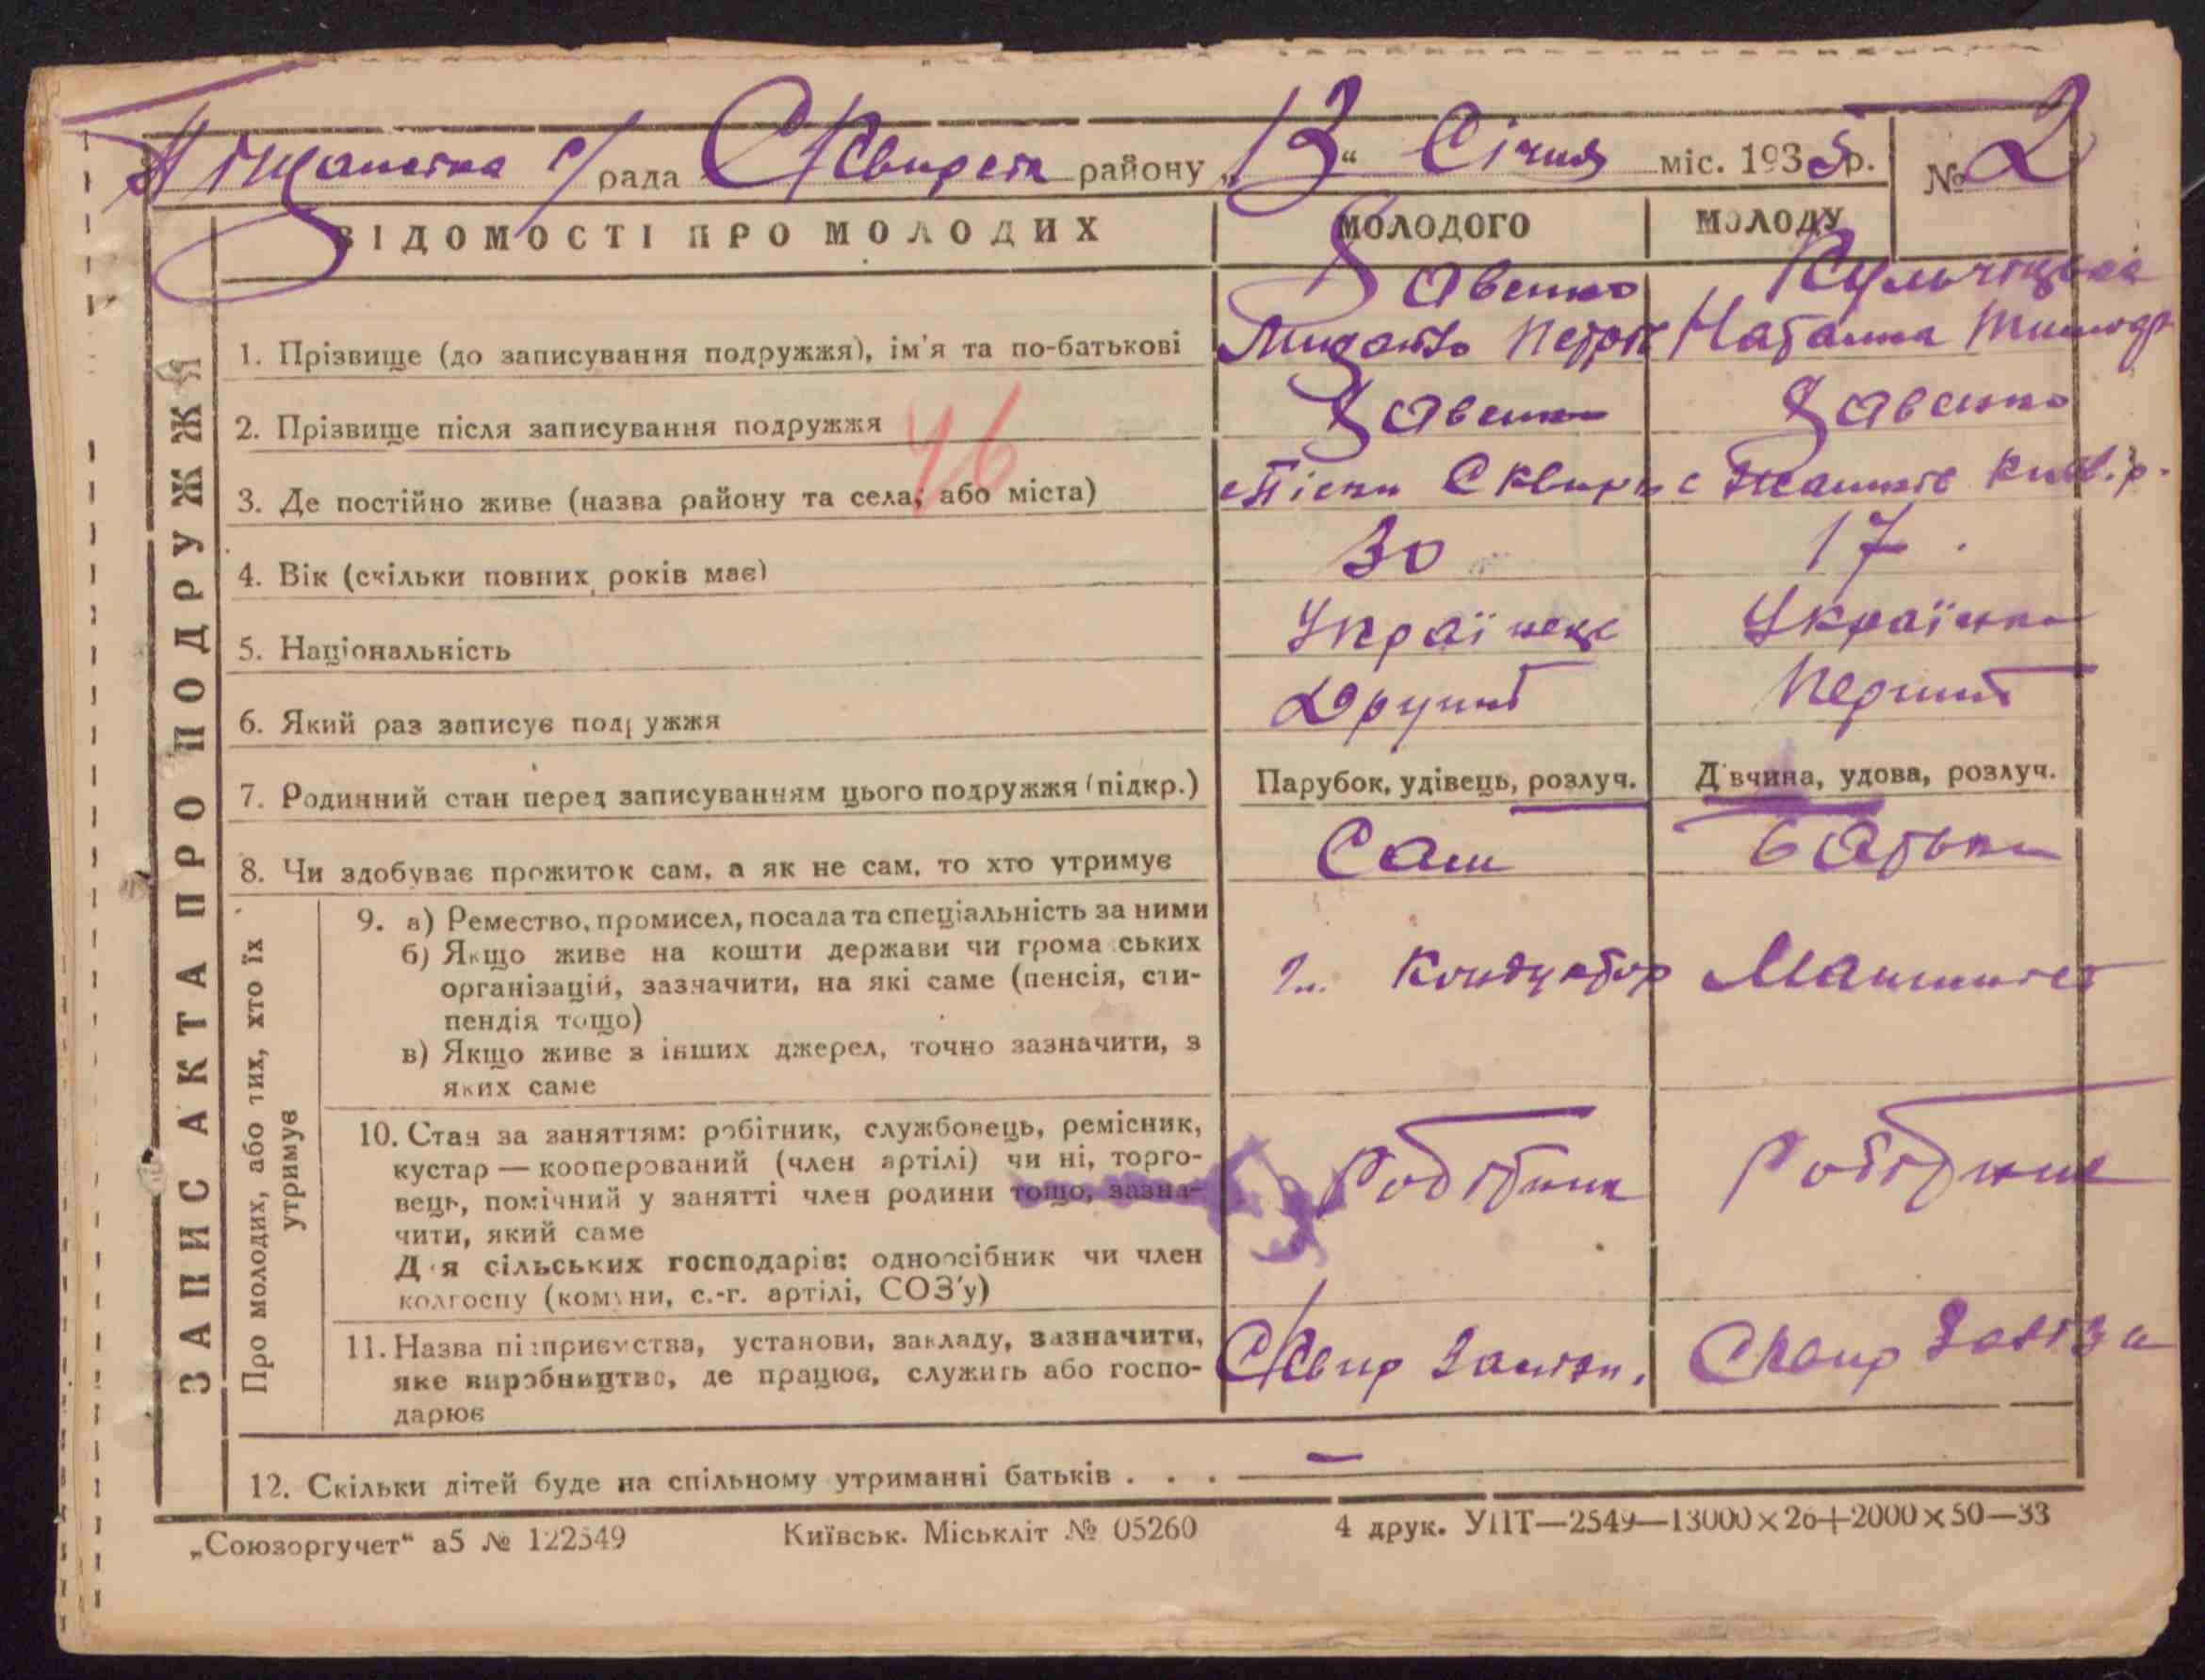 рада Сквирськ району „13“ Січня міс. 1935 р. № 2
ВІДОМОСТІ ПРО МОЛОДИХ
МОЛОДОГО
МОЛОДУ
ЗАПИС АКТА ПРО ПОДРУЖЖЯ
1. Прізвище (до записування подружжя), ім'я та по-батькові
Савенко
Петров
Наталка
2. Прізвище після записування подружжя
Савенко
Савенко
46
3. Де постійно живе (назва району та села, або міста)
с Піски Сквирс
с
4. Вік (скільки повних років має)
30
17
5. Національність
Українець
Українка
6. Який раз записує подружжя
Другий
Перший
7. Родинний стан перед записуванням цього подружжя (підкр.)
Парубок, удівець, розлуч.
Дівчина, удова, розлуч.
8. Чи здобуває прожиток сам, а як не сам, то хто утримує
Сам
батьки
Про молодих, або тих, хто їх утримує
9. а) Ремество, промисел, посада та спеціальність за ними
б) Якщо живе на кошти держави чи громадських
організацій, зазначити, на які саме (пенсія, сти-
пендія тощо)
в) Якщо живе з інших джерел, точно зазначити, з
яких саме
Кондуктор
Машиніст
10. Стан за заняттям: робітник, службовець, ремісник,
кустар — кооперований (член артілі) чи ні, торго-
вець, помічний у занятті член родини тощо, зазна-
чити, який саме
Для сільських господарів: одноосібник чи член
колгоспу (комуни, с.-г. артілі, СОЗ'у)
Робітник
Робітник
11. Назва підприємства, установи, закладу, зазначити,
яке виробництво, де працює, служить або госпо-
дарює
Сквир
Сквир
12. Скільки дітей буде на спільному утриманні батьків . . . —
„Союзоргучет“ а5 № 122549
Київськ. Міськліт № 05260
4 друк. УПТ—2549—13000×26+2000×50—33